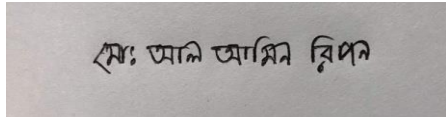 মোঃ আল আমিন রিপন